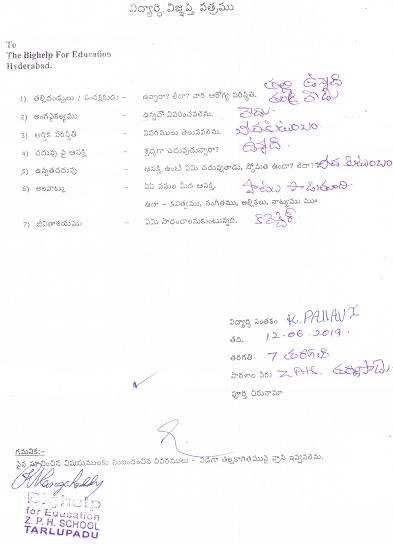 విద్యార్ధి విజ్ఞప్తి పత్రము
To
The Bighelp For Education
Hyderabad.
1) తల్లిదండ్రులు / సంరక్షకుడు - ఉన్నారా? లేదా? వారి ఆరోగ్య పరిస్థితి. తల్లి ఉన్నది
తండ్రి లేడు
2) అంగవైకల్యము - ఉన్నచో వివరించవలెను. లేదు
3) ఆర్థిక పరిస్థితి - వివరములు తెలుపవలెను. బీదకుటుంబం
4) చదువు పై ఆసక్తి - శ్రద్ధగా చదువుచున్నారా? ఉన్నది
5) ఉన్నతచదువు - ఆసక్తి ఉంటే ఏమి చదువుతాడు, స్తోమత ఉందా? లేదా? బీద కుటుంబం
6) అలవాట్లు - ఏఏ పనుల మీద ఆసక్తి. పాటలు పాడుతుంది
ఉదా - కవిత్వము, సంగీతము, అల్లికలు, నాట్యము
7) జీవితాశయము - ఏమి సాధించాలనుకుంటున్నది. కలెక్టర్
విద్యార్థి సంతకం K. PALLAVI
తేది. 12-06-2019.
తరగతి 7 తరగతి
పాఠశాల పేరు Z.P.H.S.
పూర్తి చిరునామా
గమనిక:-
పైన సూచించిన విషయములకు సంబంధించిన వివరములు - విడిగా తెల్లకాగితముపై వ్రాసి ఇవ్వవలెను.
Bighelp
for Education
Z. P. H. SCHOOL
TARLUPADU